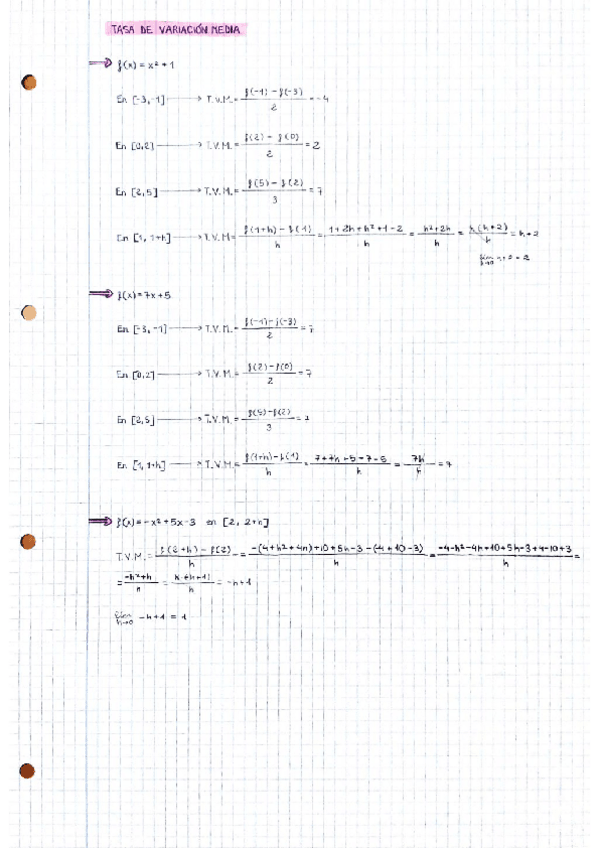 TASA DE VARIACIÓN MEDIA
⇒ f(x) = x² + 1
En [-3, -1] → T.V.M. = (f(-1) - f(-3))/2 = -4
En [0,2] → T.V.M. = (f(2) - f(0))/2 = 2
En [2,5] → T.V.M. = (f(5) - f(2))/3 = 7
En [1, 1+h] → T.V.M = (f(1+h) - f(1))/h = (1+2h+h²+1-2)/h = (h²+2h)/h = h(h+2)/h = h+2
lím h→0 h+2 = 2
⇒ f(x) = 7x + 5
En [-3, -1] → T.V.M. = (f(-1) - f(-3))/2 = 7
En [0,2] → T.V.M. = (f(2) - f(0))/2 = 7
En [2,5] → T.V.M. = (f(5) - f(2))/3 = 7
En [1, 1+h] → T.V.M. = (f(1+h) - f(1))/h = (7+7h+5-7-5)/h = 7h/h = 7
⇒ f(x) = -x² + 5x - 3 en [2, 2+h]
T.V.M. = (f(2+h) - f(2))/h = (-(4+h²+4h)+10+5h-3-(-4+10-3))/h = (-4-h²-4h+10+5h-3+4-10+3)/h =
= (-h²+h)/h = h(-h+1)/h = -h+1
lím h→0 -h+1 = 1